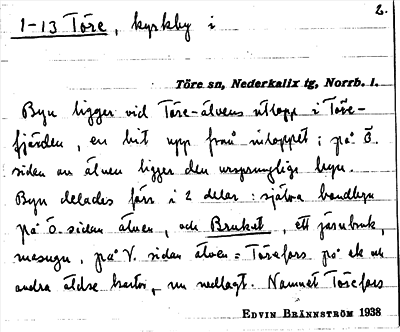 2.
1-13 Töre, kyrkby i
Töre sn, Nederkalix tg, Norrb. l.
Byn ligger vid Töre-älvens utlopp i Töre-
fjärden, en bit upp från inloppet; på Ö.
sidan av älven ligger den ursprungliga byn.
Byn delades förr i 2 delar: själva bondbyn
på Ö. sidan älven, och Bruket, ett järnbruk,
masugn, på V. sidan älven = Törefors på ek. och
andra äldre kartor, nu nedlagt. Namnet Törefors
EDVIN BRÄNNSTRÖM 1938